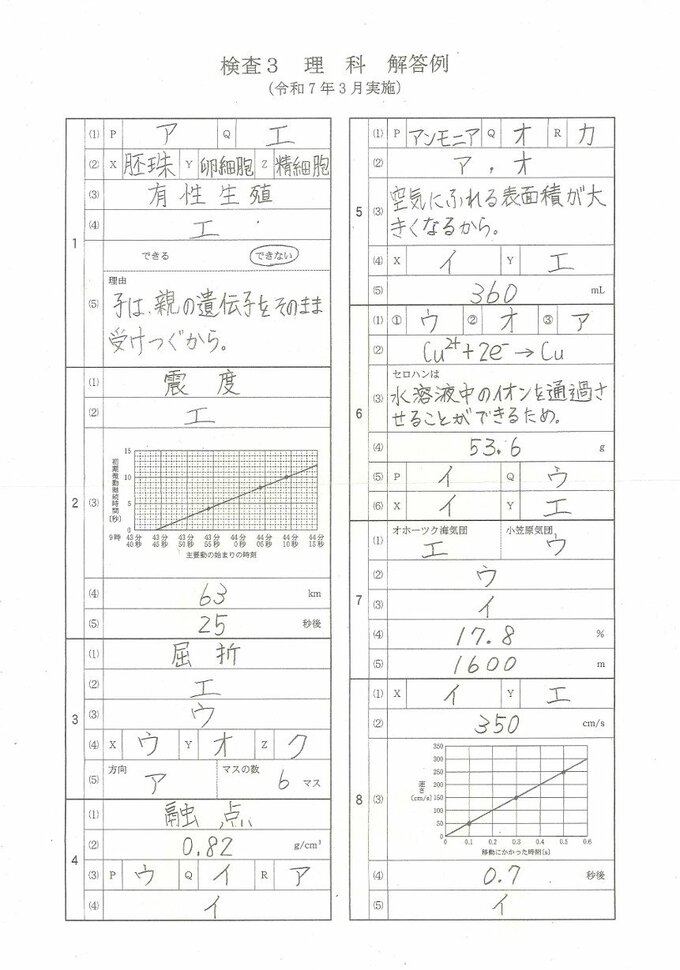 検査3 理科 解答例
(令和7年3月実施)
1
(1) P ア Q エ
(2) X 胚珠 Y 卵細胞 Z 精細胞
(3) 有性生殖
(4) エ
(5) できる できない
理由
子は、親の遺伝子をそのまま
受けつぐから。
2
(1) 震度
(2) エ
(3)
初期微動継続時間[秒]
15
10
5
0
9時 43分40秒 43分45秒 43分50秒 43分55秒 44分0秒 44分05秒 44分10秒 44分15秒
主要動の始まりの時刻
(4) 63 km
(5) 25 秒後
3
(1) 屈折
(2) エ
(3) ウ
(4) X ウ Y オ Z ク
(5) 方向 ア マスの数 6 マス
4
(1) 融点
(2) 0.82 g/cm³
(3) P ウ Q イ R ア
(4) イ
5
(1) P アンモニア Q オ R カ
(2) ア，オ
(3) 空気にふれる表面積が大
きくなるから。
(4) X イ Y エ
(5) 360 mL
6
(1) ① ウ ② オ ③ ア
(2) Cu²⁺+2e⁻→Cu
(3) セロハンは
水溶液中のイオンを通過さ
せることができるため。
(4) 53.6 g
(5) P イ Q ウ
(6) X イ Y エ
7
(1) オホーツク海気団 エ 小笠原気団 ウ
(2) ウ
(3) イ
(4) 17.8 %
(5) 1600 m
8
(1) X イ Y エ
(2) 350 cm/s
(3)
速さ[cm/s]
350
300
250
200
150
100
50
0
0 0.1 0.2 0.3 0.4 0.5 0.6
移動にかかった時刻[s]
(4) 0.7 秒後
(5) イ